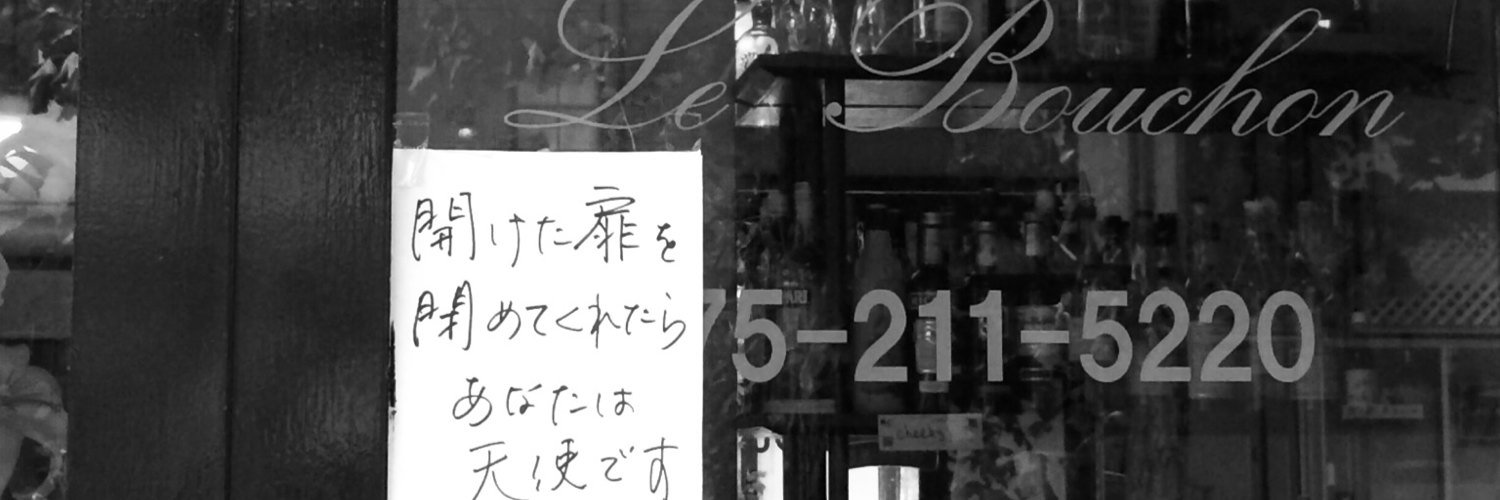 Le Bouchon
開けた扉を
閉めてくれたら
あなたは
天使です
75-211-5220
cheeky